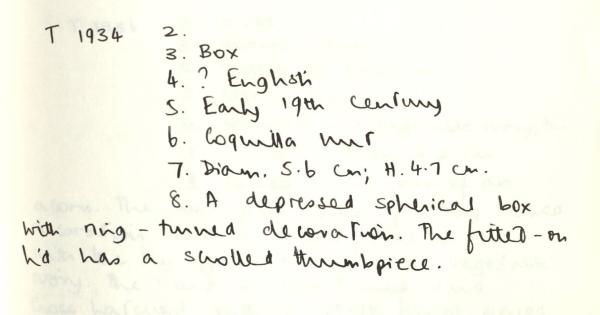 T 1934 2.
3. Box
4. ? English
5. Early 19th century
6. Coquilla nut
7. Diam. 5.6 cm; H. 4.7 cm.
8. A depressed spherical box
with ring-turned decoration. The fitted-on
lid has a scrolled thumbpiece.